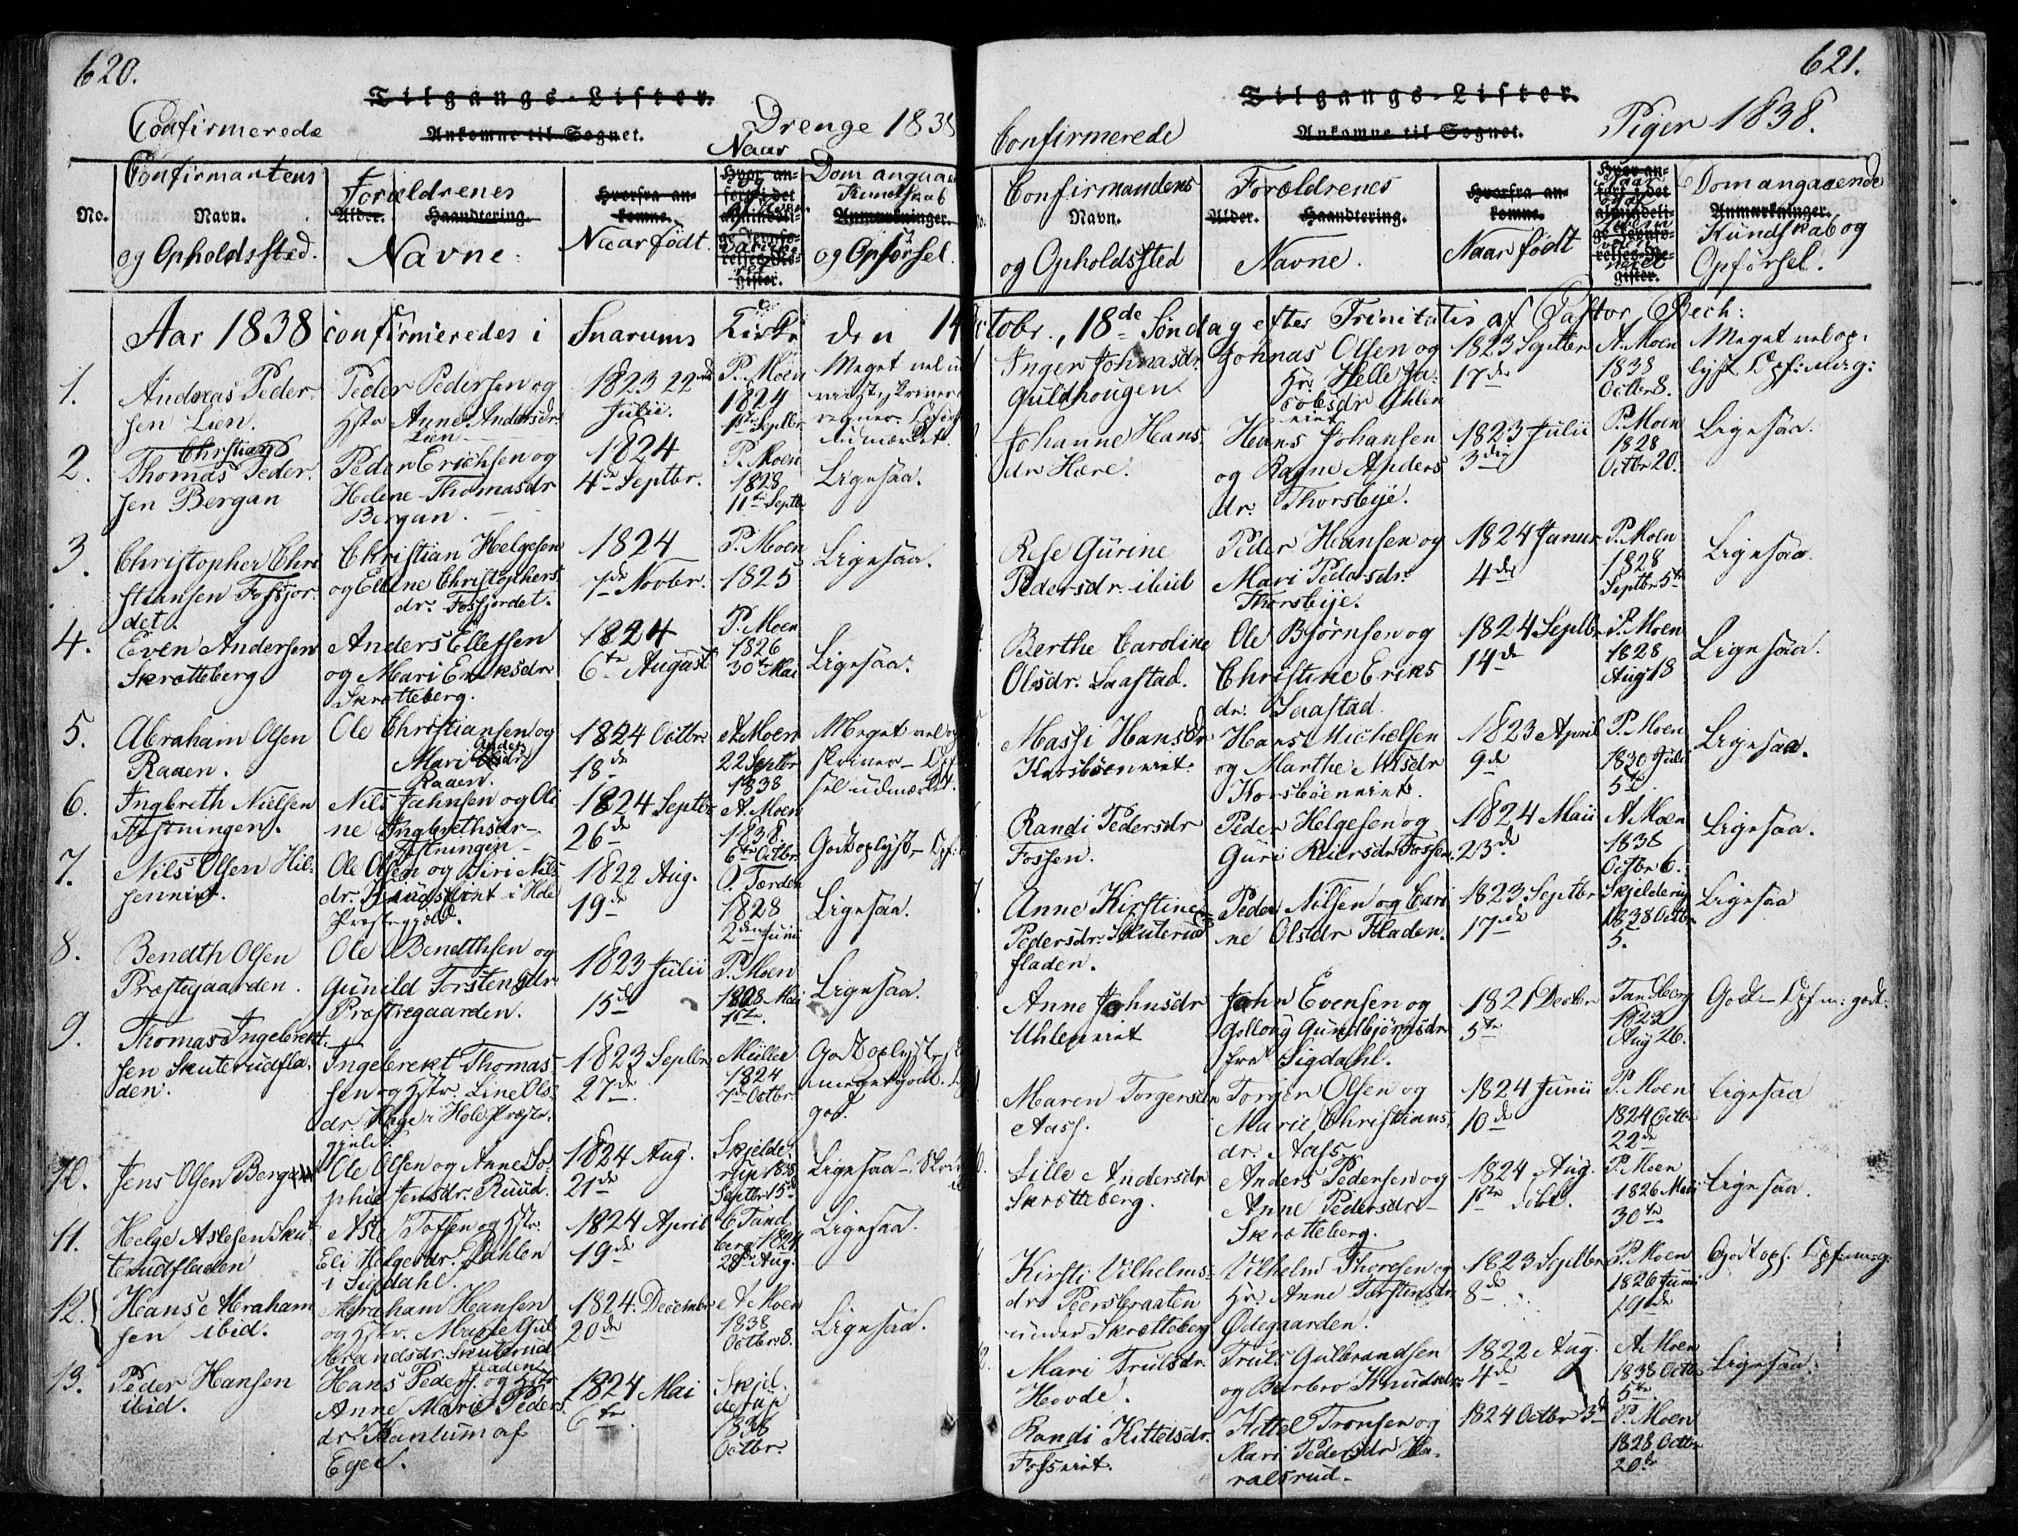 620.
Tilgangs-Lister.
Confirmerede
Ankomne til Sognet.
Drenge 1838
Naar
Confirmantens
Forældrenes
Dom angaaen
Kundskab
No.
Navn.
Alder.
Haandtering.
Hvorfra an-
komne.
Anmærkninger.
og Opholdssted.
Navne.
Naar født.
og Opførsel.
Aar 1838 confirmeredes i Snarums Kirke den 14
1.
Andreas Peder
sen Lien.
Peder Pedersen og
Hstr Anne Andersdr
Lien
1823 22
Julii.
P. Moen
1824
1ste Septbr
Meget vel
2.
Christian
Thomas Peder
sen Bergan
Peder Erichsen og
Helene Thomasdr
Bergan.
1824
4de Septbr.
P. Moen
1828
11te Septbr
Ligesaa.
3.
Christopher Chri
stiansen Fossjor
det.
Christian Helgesen
og Ellene Christophers
dr. Fossjordet.
1824
1de Novbr.
P. Moen
1825
Ligesaa.
4.
Even Andersen
Skrotteberg
Anders Ellefsen
og Mari Eriksdr
Skrotteberg.
1824
6te August
P. Moen
1826
30te Mai
Ligesaa.
5.
Abraham Olsen
Raaen.
Ole Christiansen og
Mari Anders
dr
Raaen.
1824 Octbr
18de
A. Moen
22 Septbr
1838
Meget vel
skriver – Opf
sel udmærket.
6.
Ingbreth Nielsen
Fostningen.
Nils Jahnsen og Oli
ne Ingbrethsdr
Fostningen
1824 Septbr
26de
A. Moen
1838
6te Octbr.
Godt oplyst – Opf:
7.
Nils Olsen Hil-
senniet.
Ole Olsen og Siri Nils
dr. i Hole
Præstegjeld.
1822 Aug.
19de
1828
2den Junii
Ligesaa.
8.
Bendth Olsen
Præstegaarden.
Ole Bendthsen og
Gunild Torstensdr
Præstegaarden.
1823 Julii
15de
P. Moen
1828 Mai
1ste.
Ligesaa.
9.
Thomas Ingebrekt-
sen Skuterudfla-
den.
Ingebrekt Thomas-
sen og Hstr. Line Ols
dr. i Hole Præste
gjeld.
1823 Septbr
27de
Müller
1824
7de Octbr.
Godt oplyst
meget godt.
10.
Jens Olsen Bergan
Ole Olsen og Anne So-
phie Jensdr. Ruud.
1824 Aug.
21de
Skjelde-
rup 1828
Septbr 15de
Ligesaa –
11.
Helge Aslesen Sku
terudfladen
Asle Tofsen og Hstr.
Eli Helgesdr.
i Sigdahl.
1824 April
19de
C Tand
berg 1824
Aug.
Ligesaa.
12.
Hans Abraham
sen ibid.
Abraham Hansen
og Hstr. Marie Gul
brandsdr. Skuterud
fladen
1824. Decembr
20de
A. Moen
1838
Octbr 8.
Ligesaa.
13.
Peder Hansen
ibid.
Hans Peders. og Hstr
Anne Marie Peders
dr. af
Eger.
1824 Mai
6te
Skjel.
derup
1836
Octbr.
621.
Tilgangs-Lister.
Confirmerede
Ankomne til Sognet.
Piger 1838.
Confirmandens
Forældrenes
Dom angaaende
No.
Navn.
Alder.
Haandtering.
Hvorfra an-
komne.
Anmærkninger.
Kundskab og
og Opholdssted
Navne.
Naar født
Opførsel.
Octobr., 18de Søndag efter Trinitatis af Pastor Bech:
Inger Johnasdr
Guldhougen.
Johnas Olsen og
Hr. Helle Ja-
cobsdr Uhlen
eiet
1823 Septbr
17de
A. Moen
1838
Octbr 8.
Meget vel op-
lyst Opf: m:g:
Johanne Hans
dr. Hære.
Hans Johansen
og Ragne Anders
dr. Thorsbye.
1823 Julii
3die
P. Moen
1828
Octbr 20.
Ligesaa.
Rese Gurine
Pedersdr. ibid
Peder Hansen og
Mari Pedersdr
Thorsbye.
1824 Janur
4de
P. Moen
1828
Septbr 5te
Ligesaa.
Berthe Caroline
Olsdr. Saastad.
Ole Bjørnsen og
Christine Eriks
dr. Saastad.
1824 Septbr
14de
P. Moen
1828
Aug 18
Ligesaa.
Massi Hansdr
Korsbøeneiet.
Hans Michelsen
og Marthe Nilsdr
Korsbøeneiet.
1823 April
9de
P. Moen
1830 Juli
5te
Ligesaa.
Randi Pedersdr
Fossen.
Peder Helgesen og
Guri Reiersdr Fossen.
1824 Maii
23de
A. Moen
1838
Octbr 6.
Ligesaa.
Anne Kirstine
Pedersdr. Skuterud
fladen.
Peder Nilsen og Cari
ne Olsdr Fladen.
1823 Septbr
17de
Skjelderup
1838 Octbr
5.
Ligesaa
Anne Johnsdr
Uhleneiet
John Evensen og
Gollovg Gundbjørnsdr
fra Sigdahl.
1821 Decbr
5te
Tandberg
1823
Aug 26.
Godt – Opf m: godt.
Maren Torgersdr
Aass.
Torger Olsen og
Marie Christians
dr. Aass.
1824 Junii
10de
P. Moen
1824 Octbr
22de
Ligesaa
Sille Andersdr
Skrotteberg.
Anders Pedersen og
Anne Pedersdr
Skrotteberg.
1824 Aug.
1ste
P. Moen
1826 Maii
30te.
Ligesaa.
Kirsti Vilhelms-
dr Peersbraaten
under Skrotteberg
Vilhelm Thoresen og
Hr. Anne Torstensdr
Ødegaarden.
1823 Septbr
8de
P. Moen
1826 Juni
19de
Godt opl. Opf: m:g:
Mari Trulsdr.
Hovde.
Truls Gulbrandsen
og Barbro Knudsdr.
1822 Aug.
4de
A. Moen
1838 Octbr
5te.
Ligesaa.
Randi Kittelsdr.
Fosseiet.
Kittel Tronsen og
Mari Pedersdr Ha-
ralsrud.
1824 Octbr 3de
P. Moen
1828 Octbr
20de